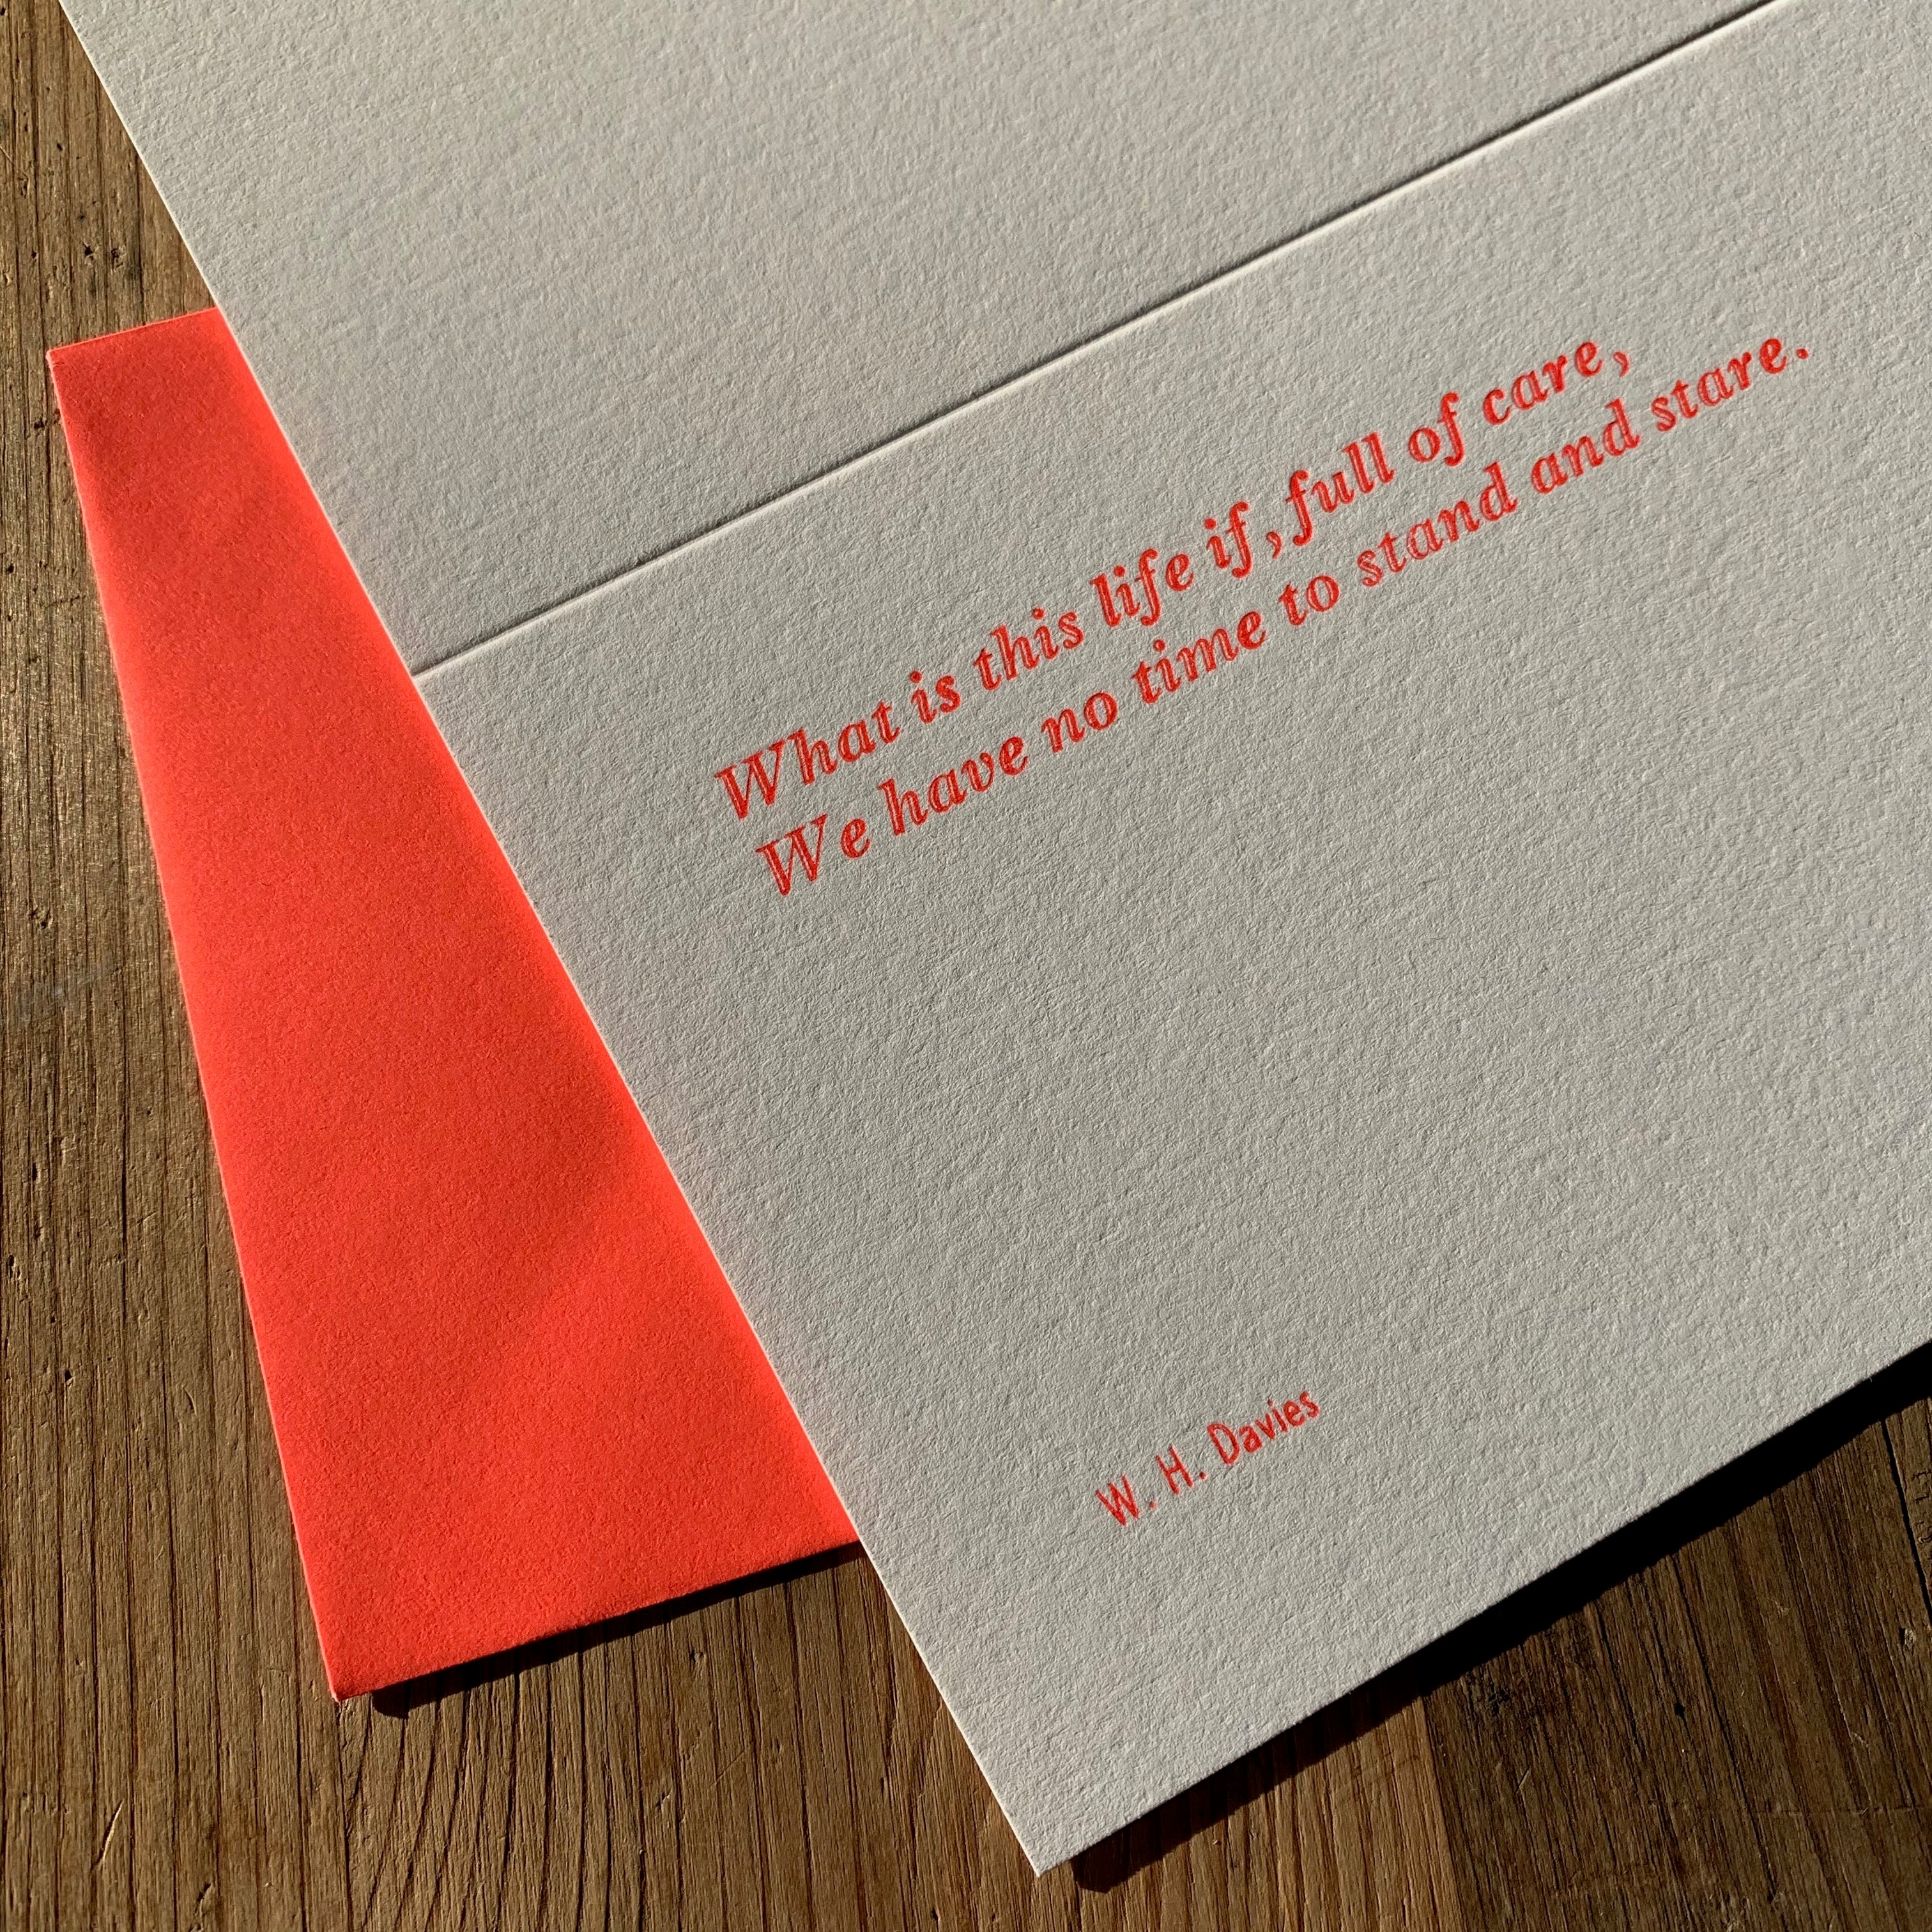 What is this life if, full of care,
We have no time to stand and stare.
W. H. Davies